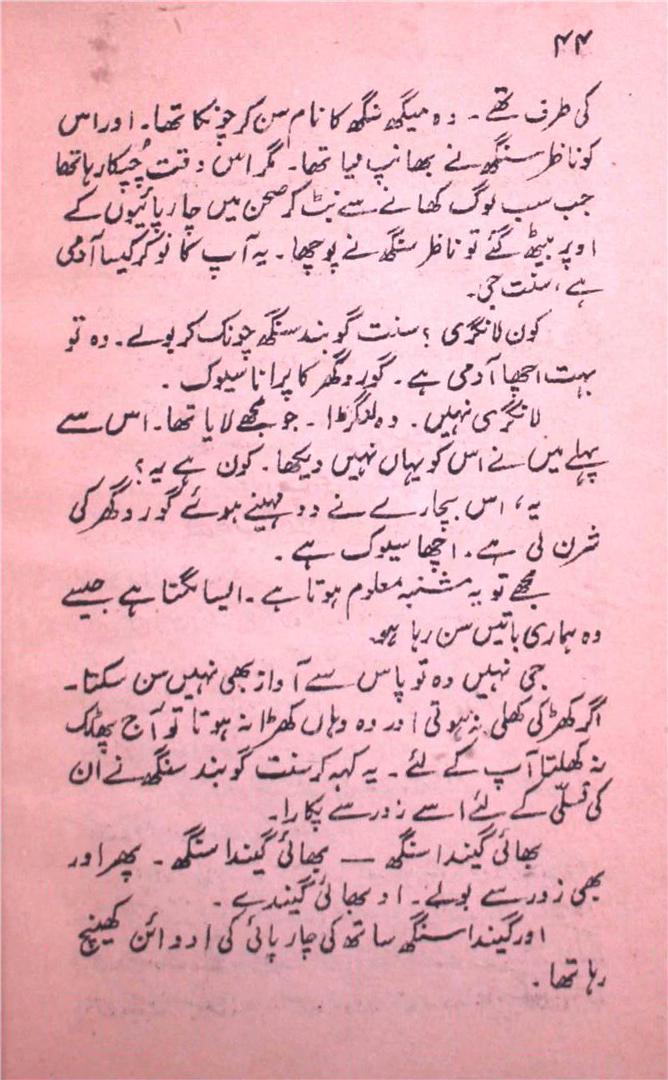 ۴۴
کی طرف تھے ۔ وہ میگھ سنگھ کا نام سن کر چونکا تھا۔ اور اس
کو ناظر سنگھ نے بھانپ لیا تھا۔ مگر اس وقت چُپکا رہا تھا
جب سب لوگ کھانے سے نبٹ کر صحن میں چارپائیوں کے
اوپر بیٹھ گئے تو ناظر سنگھ نے پوچھا ۔ یہ آپ کا نوکر کیسا آدمی
ہے ، سنت جی۔
کون لانگری ؟ سنت گوبند سنگھ چونک کر بولے ۔ وہ تو
بہت اچھا آدمی ہے ۔ گورو گھر کا پرانا سیوک ۔
لانگری نہیں ۔ وہ لنگڑا ۔ جو مجھے لایا تھا۔ اس سے
پہلے میں نے اس کو یہاں نہیں دیکھا ۔ کون ہے یہ ؟
یہ ، اس بچارے نے دو مہینے ہوئے گورو گھر کی
شرن لی ہے ۔ اچھا سیوک ہے ۔
مجھے تو یہ مشتبہ معلوم ہوتا ہے ۔ ایسا لگتا ہے جیسے
وہ ہماری باتیں سن رہا ہو۔
جی نہیں وہ تو پاس سے آواز بھی نہیں سن سکتا ۔
اگر کھڑکی کھلی نہ ہوتی اور وہ وہاں کھڑا نہ ہوتا تو آج پھاٹک
نہ کھلتا آپ کے لئے ۔ یہ کہہ کر سنت گوبند سنگھ نے ان
کی تسلّی کے لئے اسے زور سے پکارا۔
بھائی گیندا سنگھ — بھائی گیندا سنگھ ۔ پھر اور
بھی زور سے بولے ۔ او بھائی گیندے ۔
اور گیندا سنگھ ساتھ کی چارپائی کی ادوائن کھینچ
رہا تھا ۔